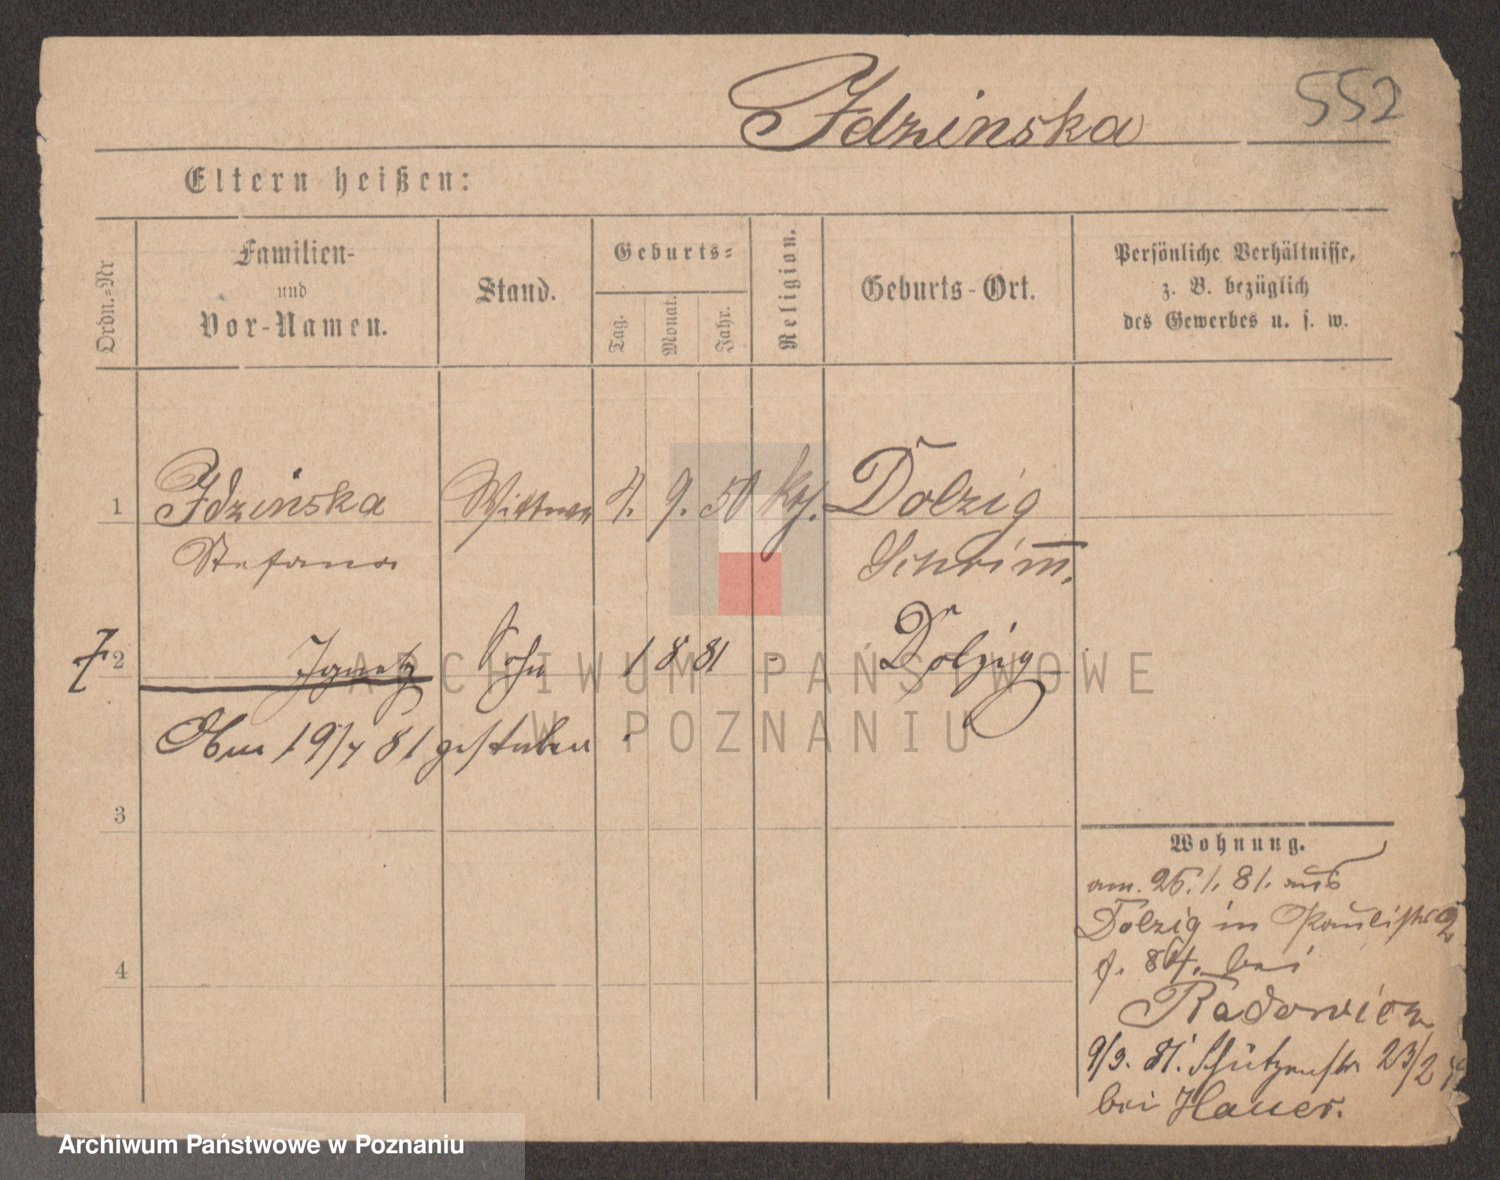 Idzinska
552
Eltern heißen:
Ordn.-Nr
Familien-
und
Vor-Namen.
Stand.
Geburts-
Tag.
Monat.
Jahr.
Religion.
Geburts-Ort.
Persönliche Verhältnisse,
z. B. bezüglich
des Gewerbes u. s. w.
1 Idzinska Wittwe 4. 9. 50 kth. Dolzig
Stefania Schrimm.
2 Ignatz Sohn 1 8 81 - Dolzig
Am 19/7 81 gestorben
3
4
Wohnung.
am 26. 1. 81. aus
Dolzig in Paulistr 2
b. 84. bei
Radowicz
9/3. 81. Schützenstr 23/24
bei Hauer.
ARCHIWUM PAŃSTWOWE
W POZNANIU
Archiwum Państwowe w Poznaniu